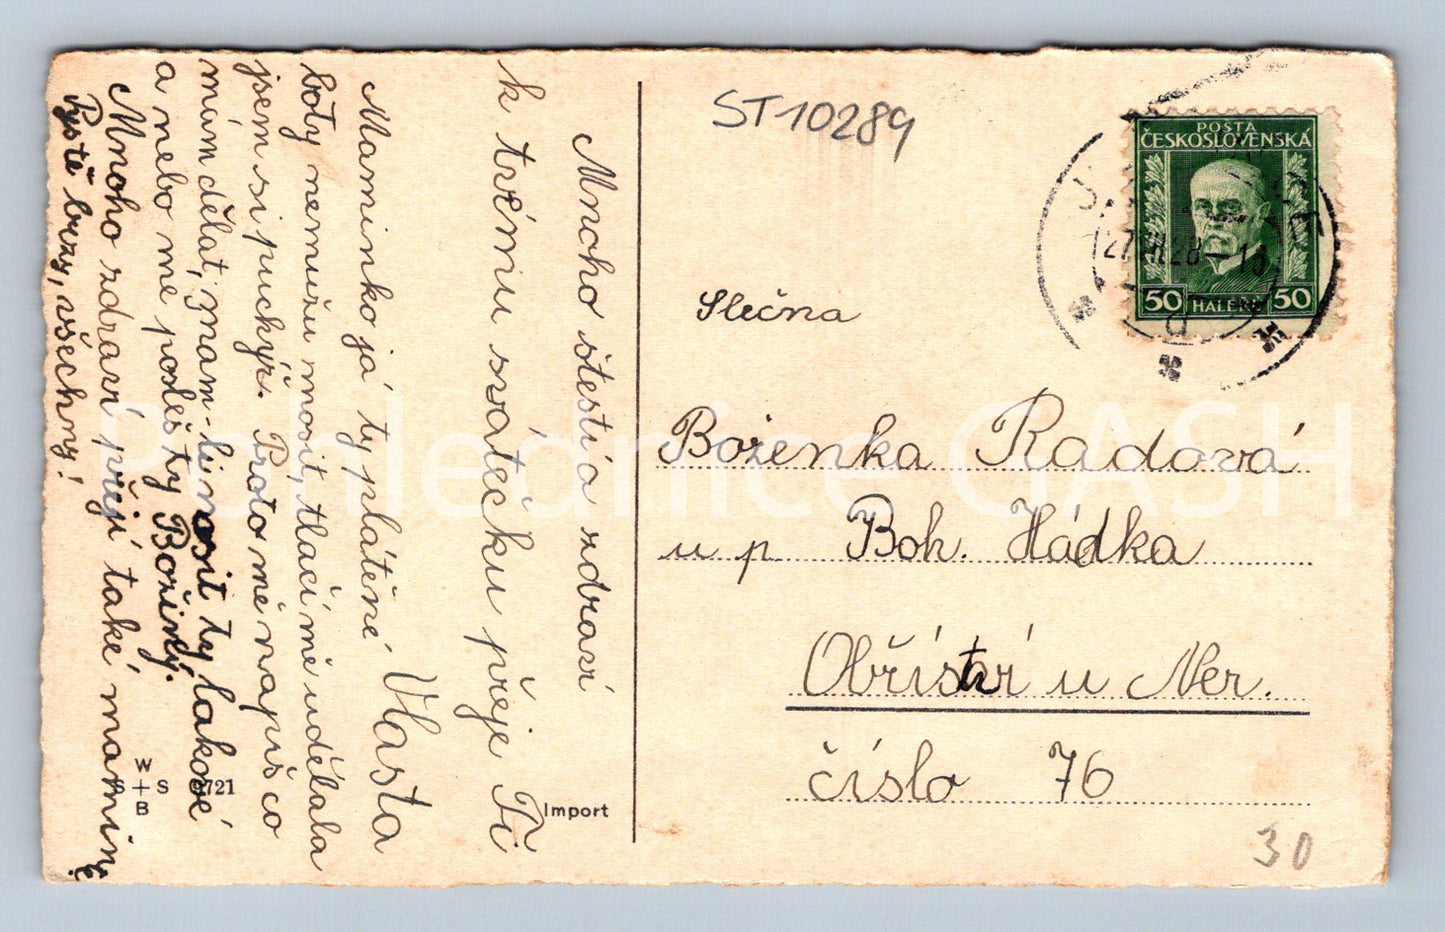 Mnoho štestí a zdraví
k tvému svátečku přeje Ti
Vlasta
Maminko já ty plátěné
boty nemužu nosit, tlačí mě udělala
jsem si puchýř. Proto mé napiš co
mám dělat, mam-li nosit ty lakové
a nebo me pošleš ty Božiny.
Mnoho zdraví přejí také mamin
Pyště brzy, všechny!
W
S + S 9721
B
Import
ST10289
POŠTA
ČESKOSLOVENSKÁ
50 HALÉŘŮ 50
27.VII.28-18
Slečna
Boženka Radová
u p. Boh. Hádka
Obříství u Ner.
číslo 76
30
Pohlednice GASH